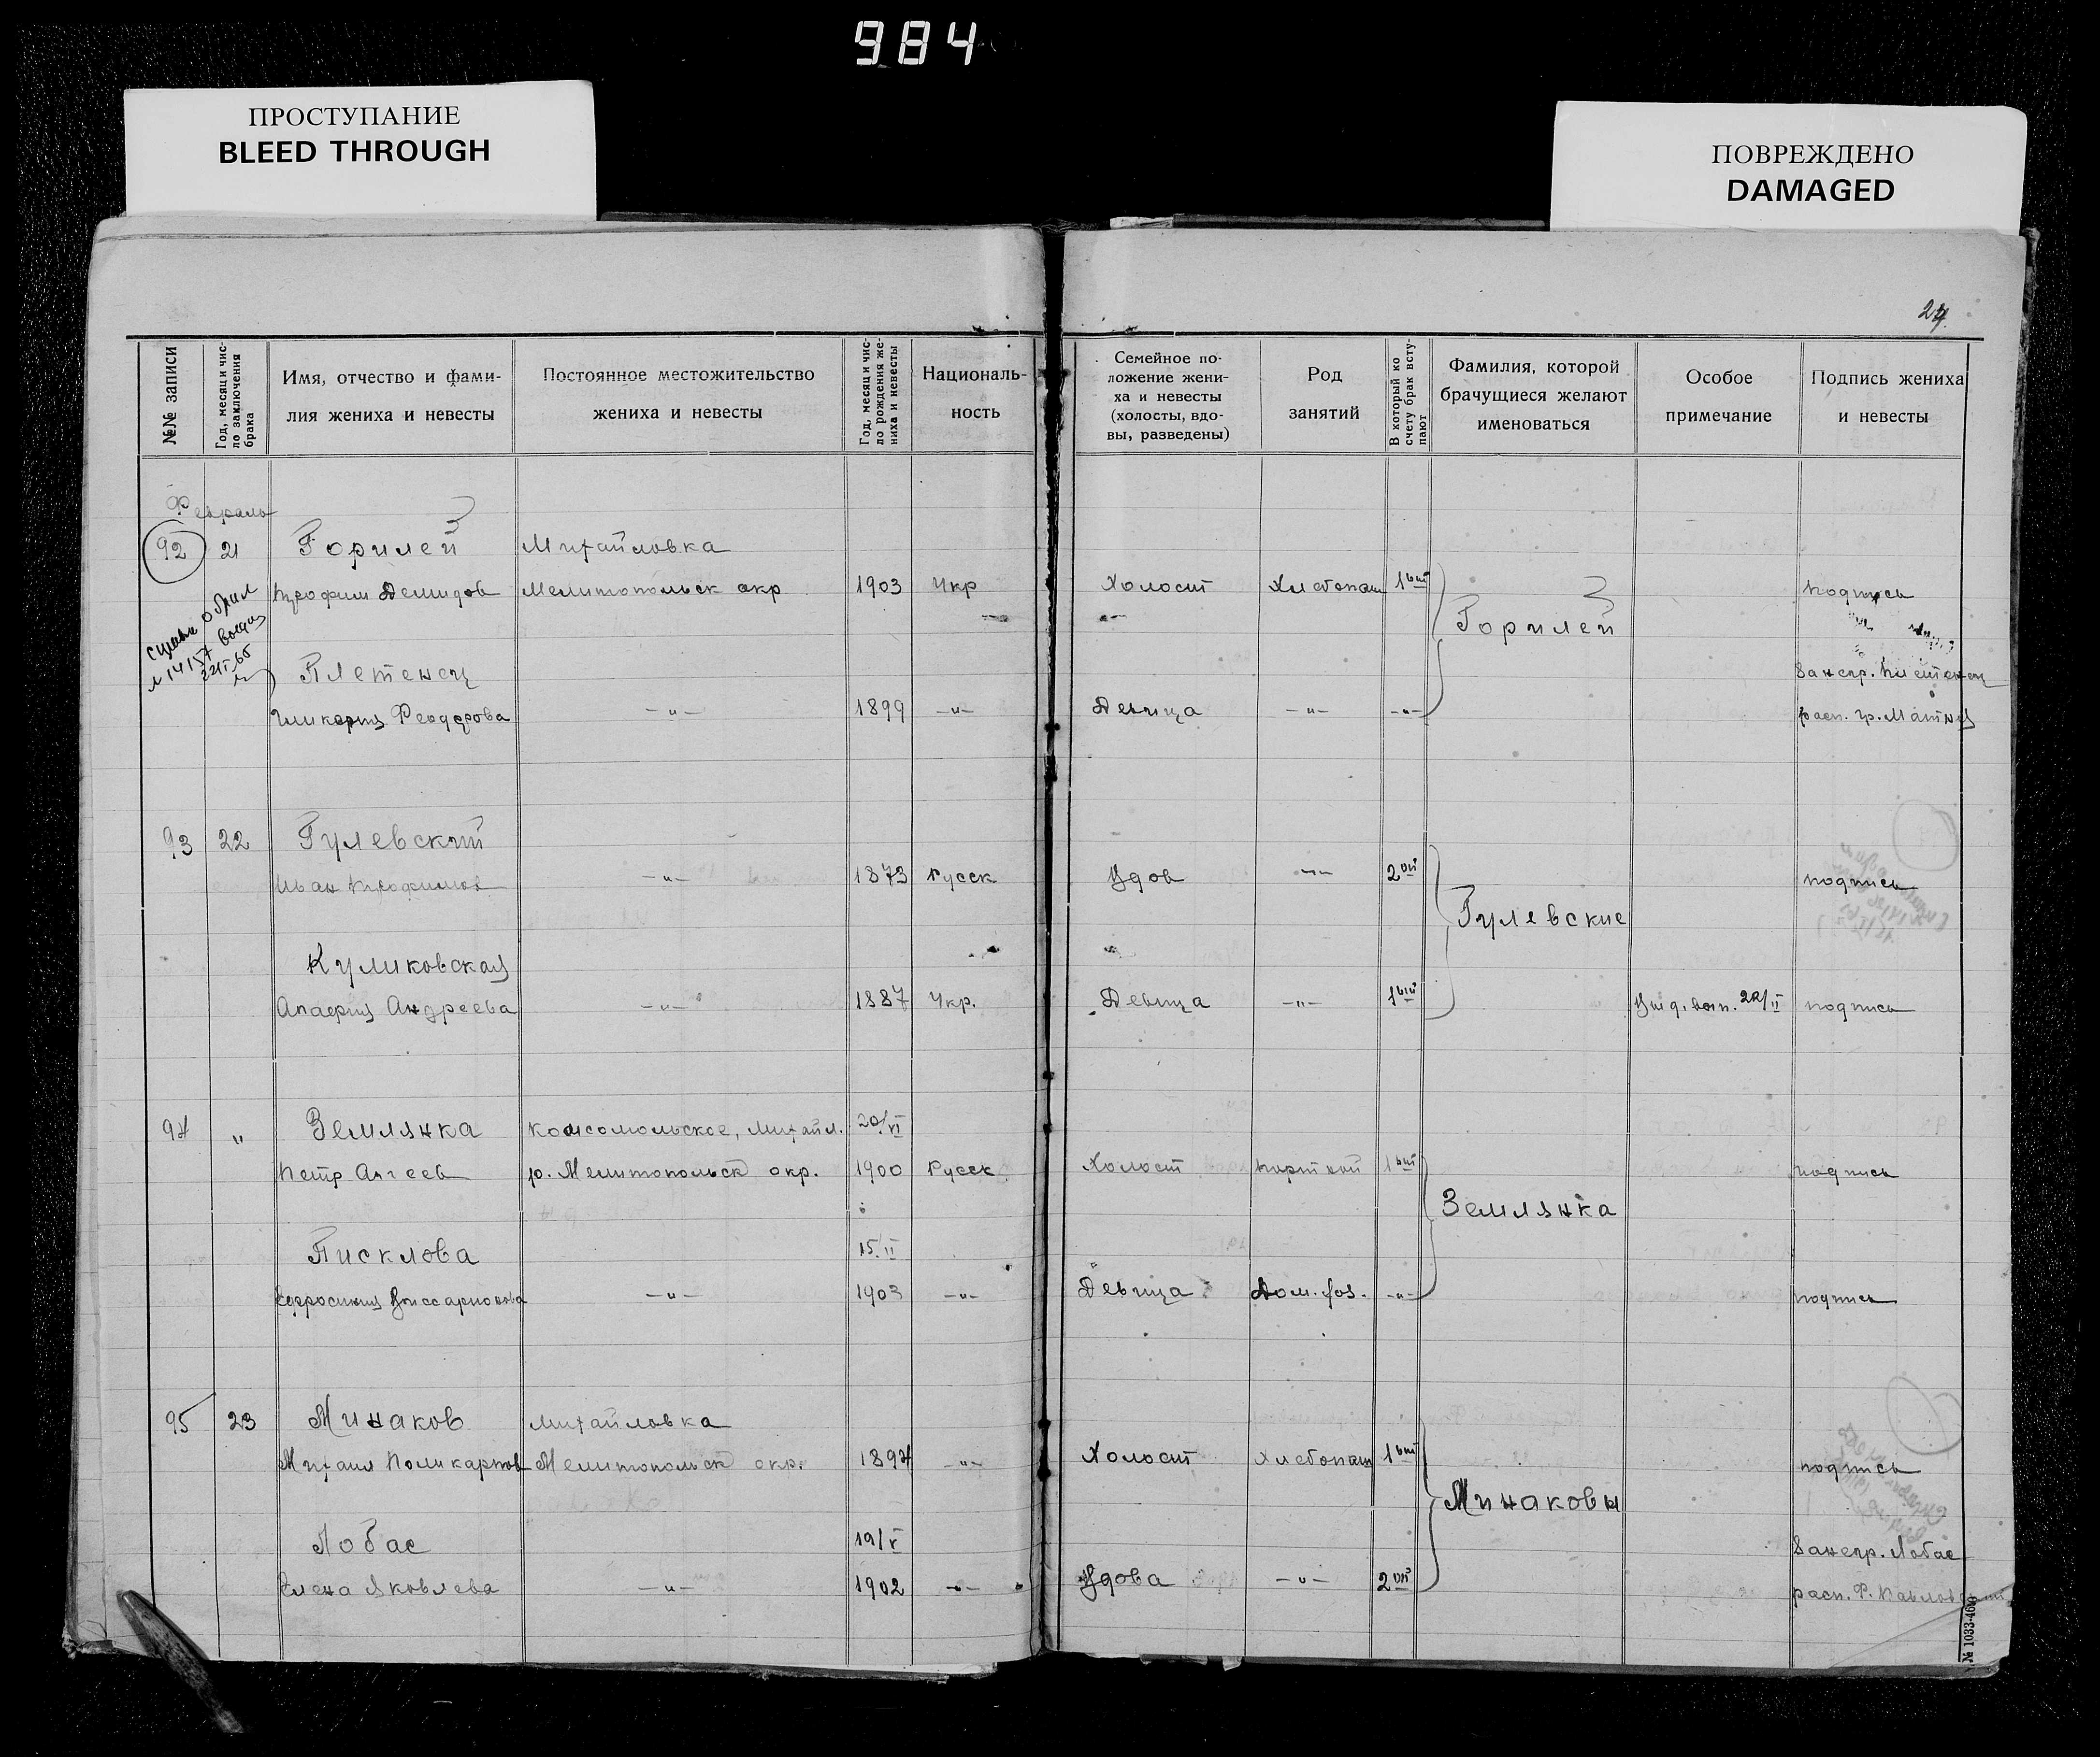 984
ПРОСТУПАНИЕ
BLEED THROUGH
ПОВРЕЖДЕНО
DAMAGED
24
№№ записи
Год, месяц и чис-
ло заключения
брака
Имя, отчество и фами-
лия жениха и невесты
Постоянное местожительство
жениха и невесты
Год, месяц и чис-
ло рождения же-
ниха и невесты
Националь-
ность
Семейное по-
ложение жени-
ха и невесты
(холосты, вдо-
вы, разведены)
Род
занятий
В который ко
счету брак всту-
пают
Фамилия, которой
брачущиеся желают
именоваться
Особое
примечание
Подпись жениха
и невесты
Февраль
92 21 Горилей Михайловка
Трофим Демидов Мелитопольск окр 1903 Укр Холост Хлебопаш 1ый подпись
Горилей
Плетенец За негр. Плетенец
Гликерия Феодорова -"- 1899 -"- Девица -"- -"- расп. гр. Матвей
93 22 Гулевский
Иван Трофимов -"- 1873 Русск Удов -"- 2ой подпись
Гулевские
Куликовская
Агафия Андреева -"- 1887 Укр. Девица -"- 1ый 22/II подпись
94 " Землянка Комсомольское, Михайл. 20/VI
Петр Агеев р. Мелитопольск окр. 1900 Русск Холост Портной 1ый подпись
Землянка
Писклова 15/II
Ефросиния Виссарионова -"- 1903 -"- Девица Дом. хоз. -"- подпись
95 23 Минаков Михайловка
Михаил Поликарпов Мелитопольск окр. 1894 -"- Холост Хлебопаш 1ый подпись
Минаковы
Лобас 19/V За негр. Лобас
Елена Яковлева -"- 1902 -"- Удова -"- 2ой расп. Ф. Павловский
№ 1033-466